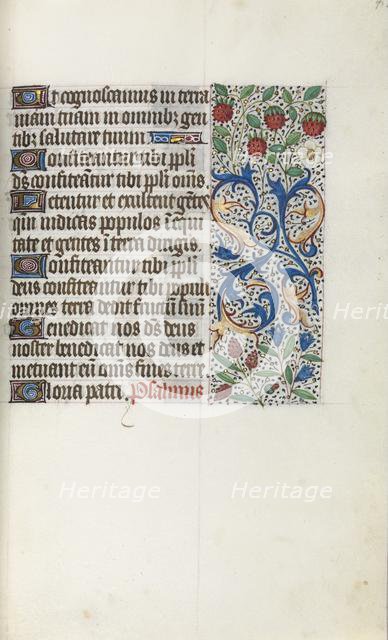 Ut cognoscamus in terra
viam tuam in omnibz gen
tibz salutare tuum
Confiteantur tibi ppli
ds confiteātur tibi ppli om̄s
Letentur et exultent gētes
qm̄ iudicas populos ī equi
tate et gentes ī terra dirigis
Confiteantur tibi ppli
deus confiteantur tibi populi
omnes terra dedit fructū suū
Benedicat nos ds deus
noster benedicat nos deus et
metuant eū om̄s fines terre
Gloria patri Psalmus
Heritage Heritage
Heritage Heritage Heritage
Heritage Heritage